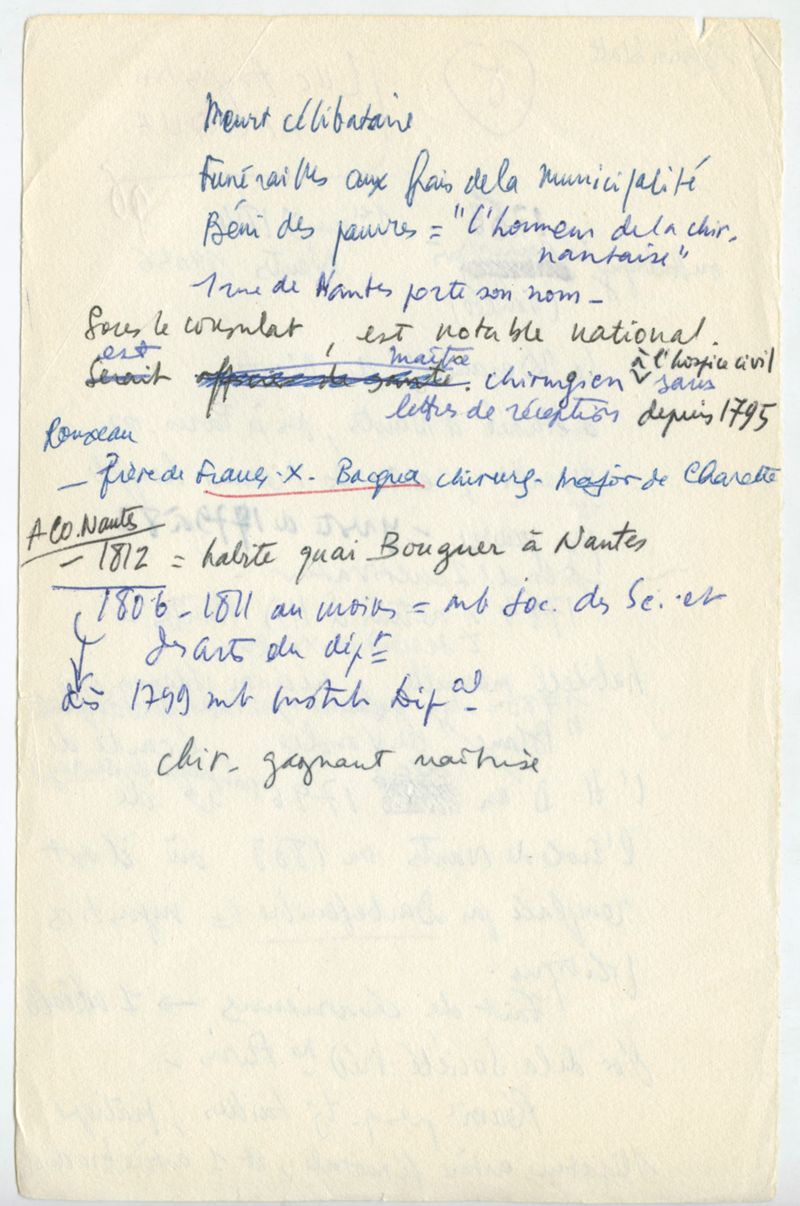 Meurt célibataire
Funérailles aux frais de la Municipalité
Béni des pauvres = "l'honneur de la chir.
nantaise"
1 rue de Nantes porte son nom -
Sous le consulat, est notable national.
est maître à l'hospice civil
Serait officier de santé. chirurgien sans
lettres de réception depuis 1795
Rousseau
- frère de Franç-X. Bacqua chirurg-major de Charette
A CO. Nantes
- 1812 = habite quai Bouguer à Nantes
1806-1811 au moins = mb Soc. des Sc. et
des arts du dépt
dès 1799 mb Instit. Dépal
chir. gagnant maîtrise